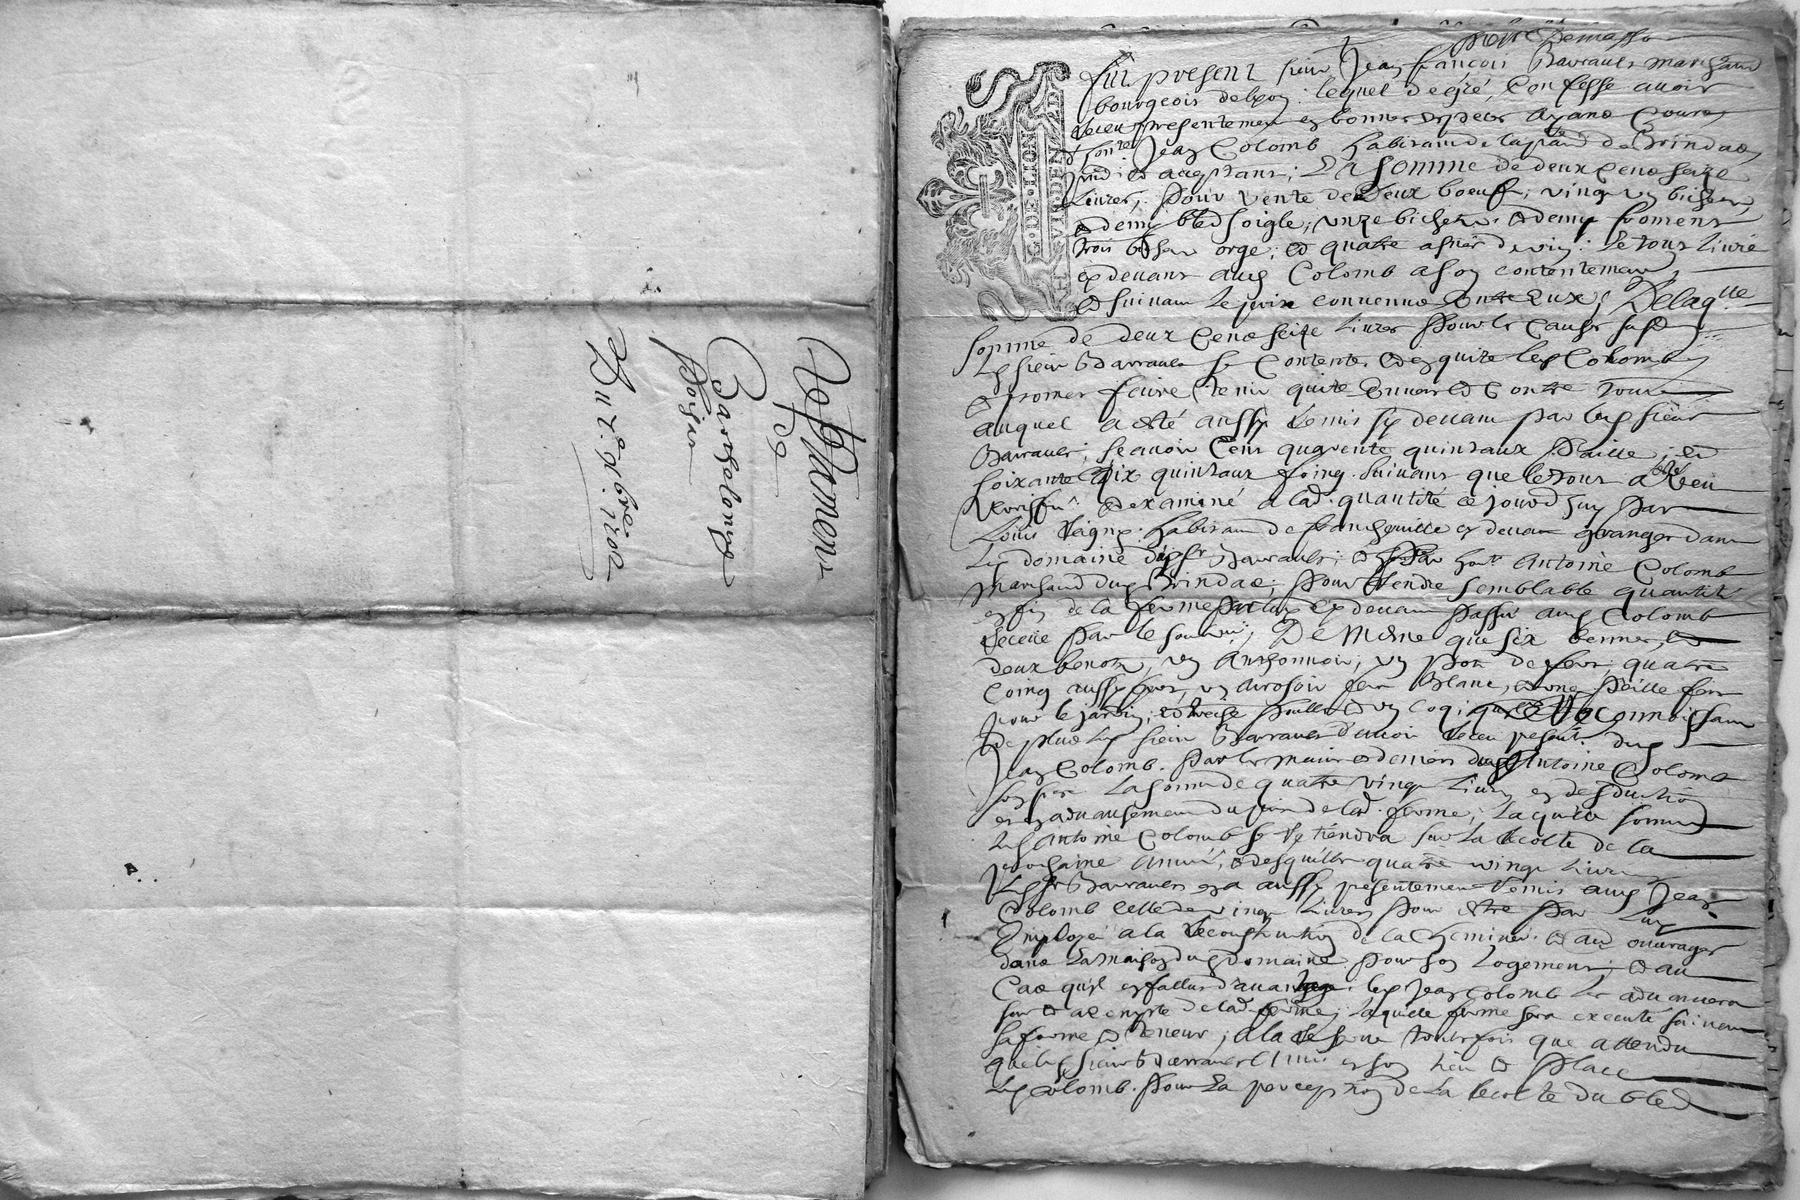 Testament
de
Barthelemye
Du 2.e 9bre 1701
G. DE. LION
Fut present sieur Jean francois Barrault marchand
bourgeois de lyon lequel de gré, Confesse avoir
receu presentement en bonnes especes ayans Cours
d'honte. Jean Colomb habitant de la parr. de Brindas,
acceptant, La somme de deux Cens seize
Livres, pour vente de Deux boeufs, vingt un bichets
& demy bled soigle, unze bichets & demy froment
trois bichets orge, & quatre asnées de vin. Le tout Livré
cy devant aud. Colomb a son contentement,
& suivant le prix convenue Entre Eux, De laq.lle
somme de deux Cens seize Livres pour les Causes susd.
Led. sieur Barrault se Contente & en quitte led. Colomb
& promet faire tenir quitte Envers & Contre Tous
auquel a esté aussy remis cy devant par led. sieur
Barrault, scavoir Cent quarente quintaux Paille, et
soixante Dix quintaux foing suivant que le tout a esté veu
veriffié & examiné a lad. quantité ce jourdhuy par
Louis habitant de francheville cy devant granger dans
Led. domaine dud. sr Barrault, & par hon. Antoine Colomb
marchand dud. Brindas, pour Rendre semblable quantité
en fin de la ferme par luy cy devant passée aud. Colomb
receue par le soussigné, De Mesme que six bennes, &
deux benots, un antonnoir, un pot de fert, quatre
coing aussy fert, un arrosoir fer Blanc, & une Paille fer
pour le jardin, & treize poulles & un coq, Reconnoissant
de plus Led. sieur Barrault d'avoir receu presentt. dud.
Jean Colomb. Par les mains & deniers dud. Antoine Colomb
son frere La somme de quatre vingt Livres en desduction
et en advansement du prix de lad. ferme, Laquelle somme
Led. Antoine Colomb se retiendra sur La recolte de la
prochaine année, & desquelles quatre vingt Livres
Led. sr Barrault en a aussy presentement remis aud. Jean
Colomb celle de vingt Livres pour estre par Luy
Employée a la reconstruction de la Cheminée & aux ouvrages
dans La maison dud. domaine pour son Logement, & au
Cas qu'il en fallut d'avantage. led. Jean Colomb les advancera
sur & a compte de lad. ferme, laquelle ferme sera executé suivant
sa forme & teneur, a la reserve toutes fois que attendu
que led. sieur Barrault en son lieu & place
Led. Colomb. pour La perception de La recolte du bled